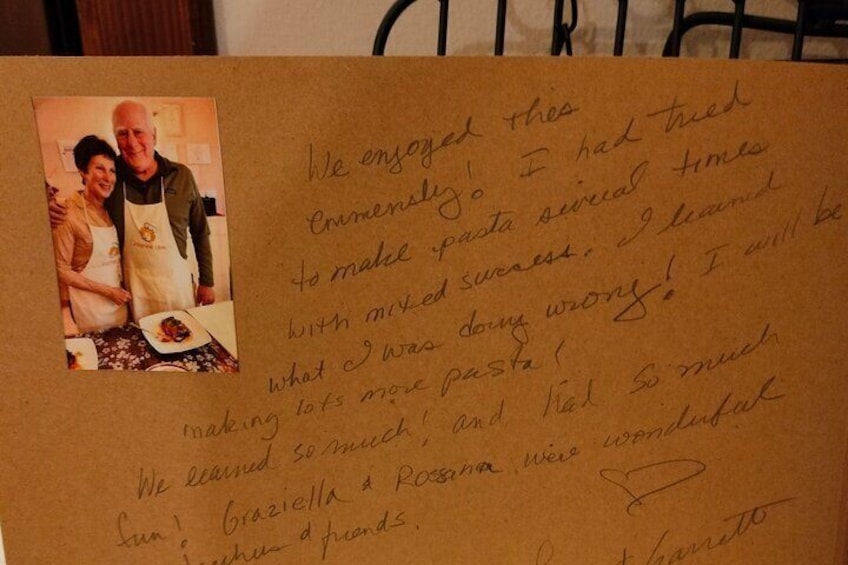 We enjoyed this
emmensley! I had tried
to make pasta several times
with mixed success. I learned
what I was doing wrong! I will be
making lots more pasta!
We learned so much! and had so much
fun! Graziella & Rossana were wonderful
teachers & friends.
Garrett